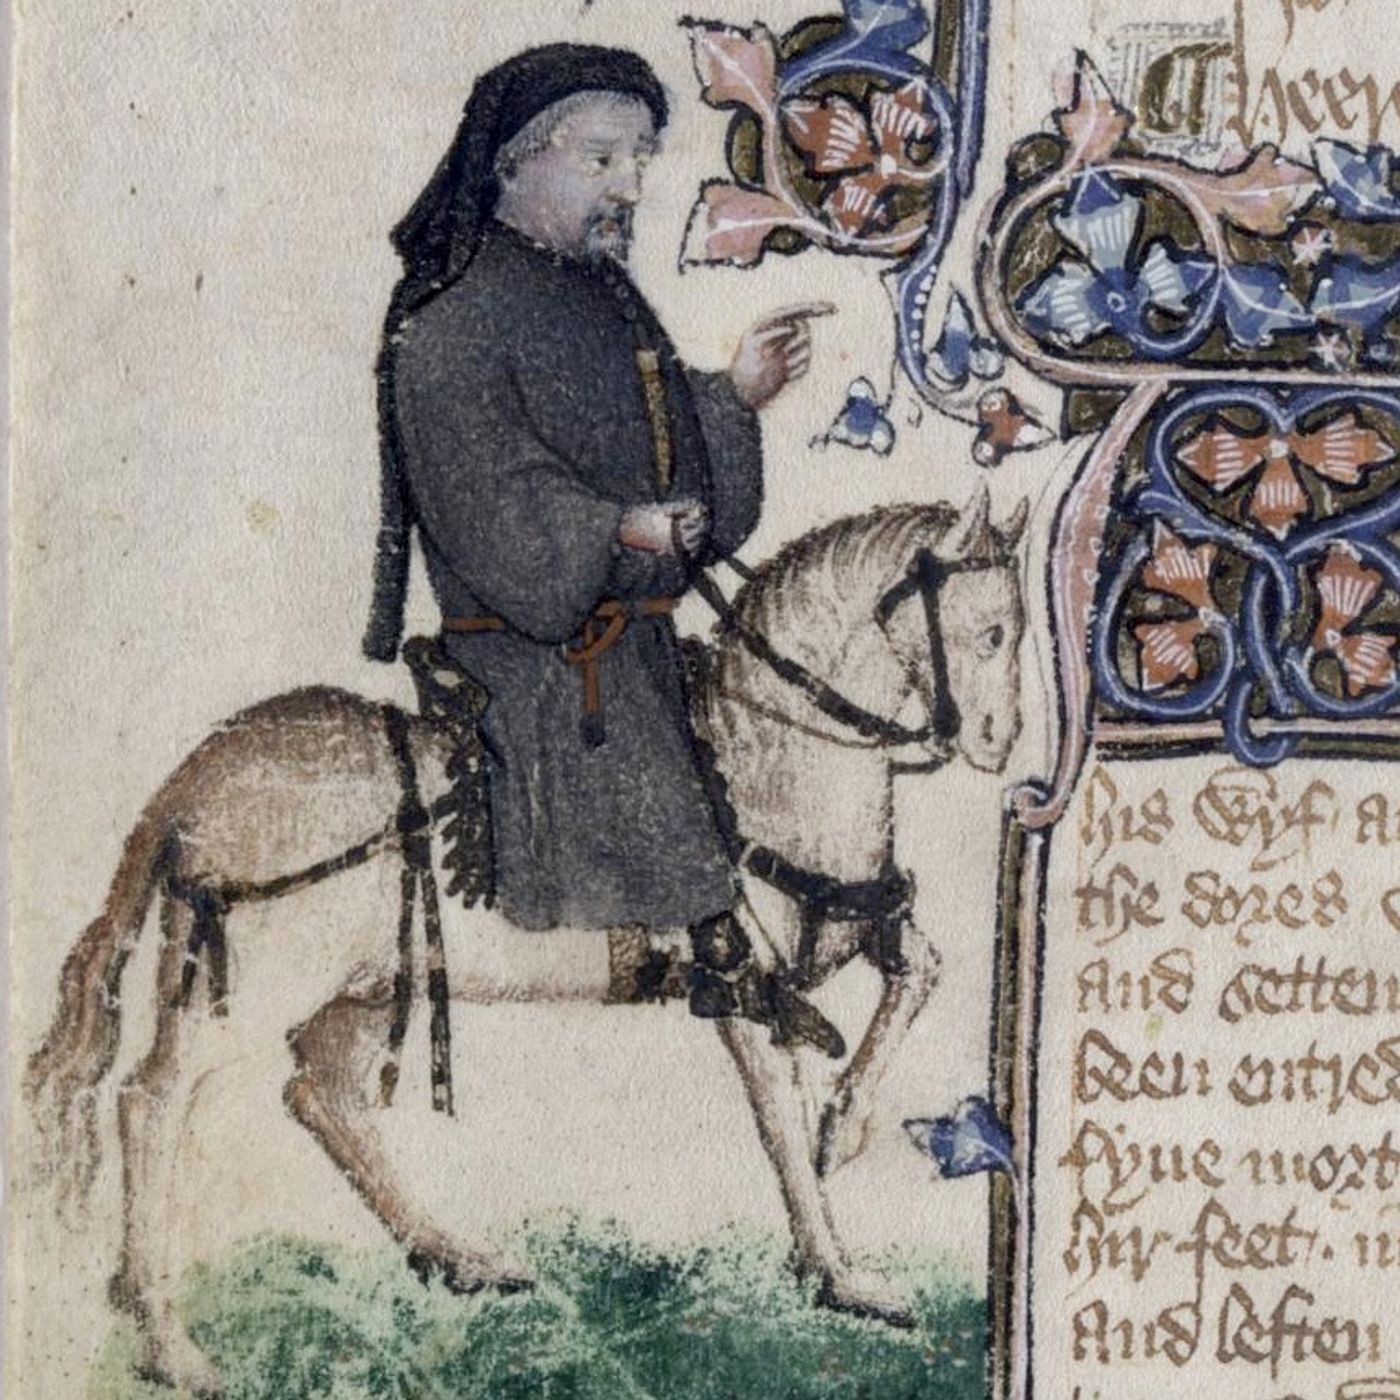 heer
his Wyf a
the dores
and setten
been entred
fyue mort
hir feet . in
and leften